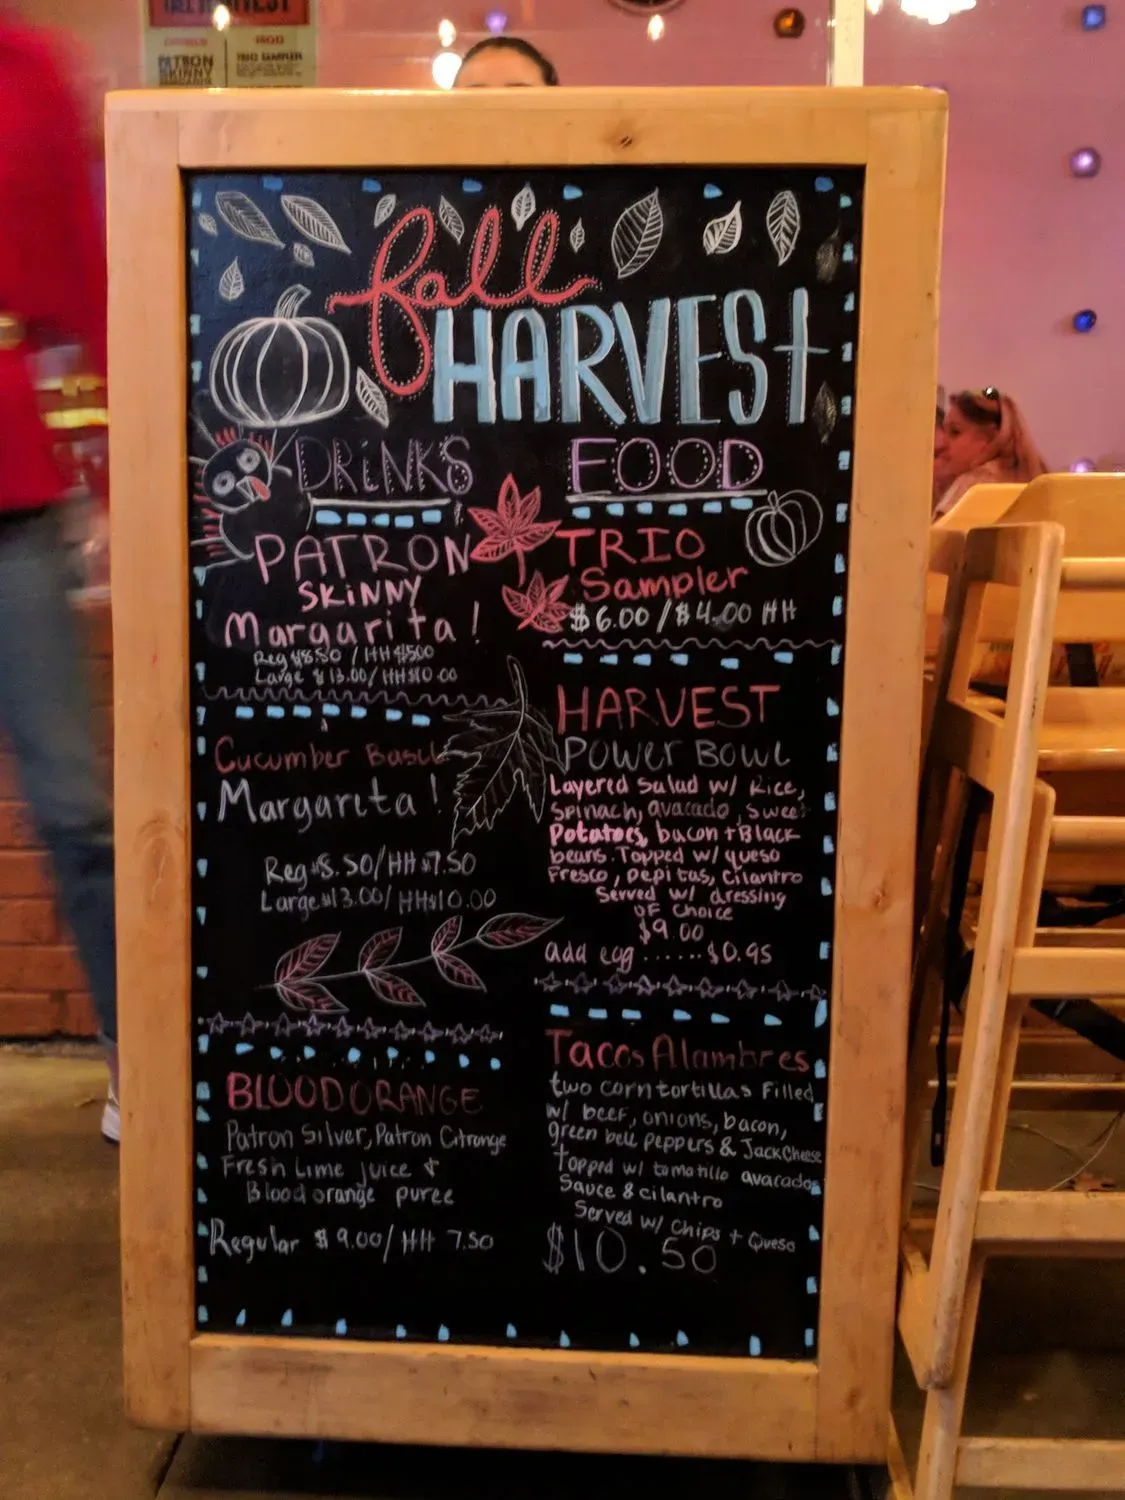 PATRON
SKINNY
TRIO SAMPLER
fall
HARVEST
DRINKS
PATRON
SKINNY
Margarita!
Reg $8.50 / HH $5.00
Large $13.00/ HH $10.00
Cucumber Basil
Margarita!
Reg $8.50/HH $7.50
Large $13.00/ HH $10.00
BLOOD ORANGE
Patron Silver, Patron Citronge
Fresh Lime juice &
Blood orange puree
Regular $9.00/ HH 7.50
FOOD
TRIO
Sampler
$6.00 /$4.00 HH
HARVEST
POWER BOWL
Layered Salad w/ Rice,
Spinach, avacado, sweet
Potatoes, bacon + Black
beans. Topped w/ queso
Fresco, pepitas, cilantro
Served w/ dressing
OF Choice
$9.00
add egg ...... $0.95
Tacos Alambres
two corn tortillas Filled
w/ beef, onions, bacon,
green bell peppers & Jack Cheese
topped w/ tomatillo avacados
Sauce & cilantro
Served w/ Chips + Queso
$10.50